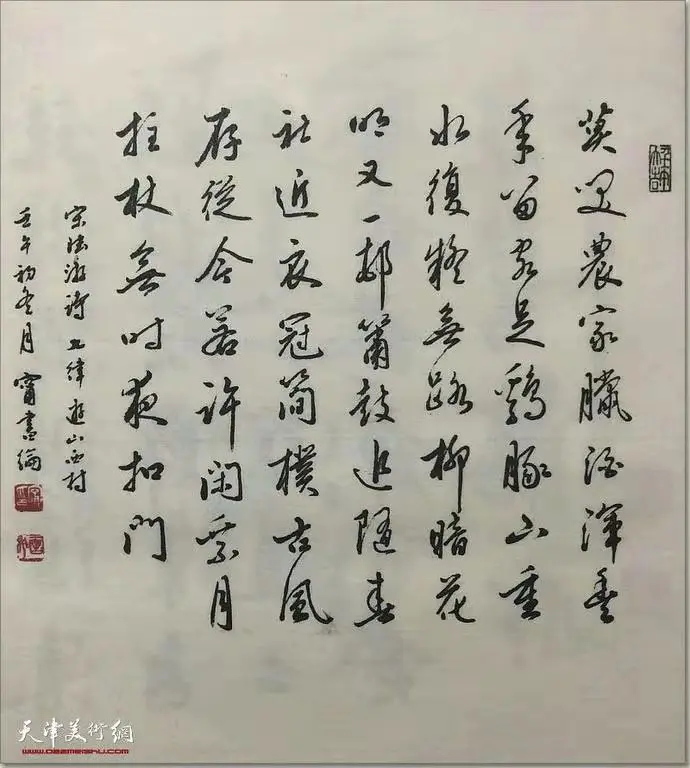 莫笑農家臘酒渾豐
年留客足鷄豚山重
水復疑無路柳暗花
明又一邨簫鼓追隨春
社近衣冠簡樸古風
存從今若許閑乘月
拄杖無時夜扣門
宋陸游詩 七律 遊山西村
壬午初冬月 甯書綸
天津美術網
www.022meishu.com